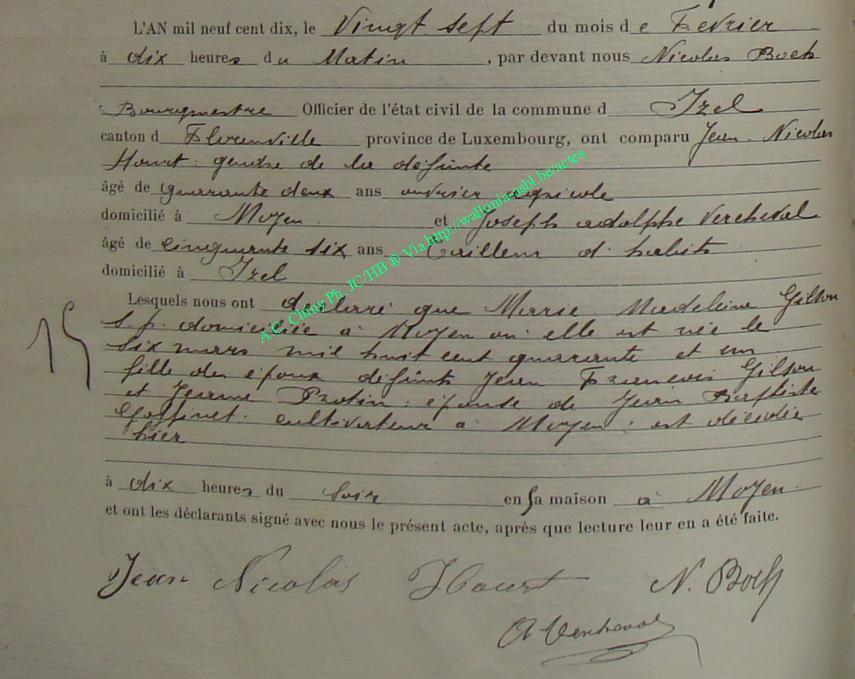 L'AN mil neuf cent dix, le Vingt sept du mois de Fevrier
à dix heures du Matin, par devant nous Nicolas Boch
Bourgmestre Officier de l'état civil de la commune d Izel
canton d Florenville province de Luxembourg, ont comparu Jean-Nicolas
gendre de la défunte
âgé de quarante deux ans ouvrier agricole
domicilié à Moyen et Joseph adolphe Vercheval
âgé de cinquante six ans Tailleur d'habits
domicilié à Izel
Lesquels nous ont declaré que Marie Madeleine Gilson
s.p. domiciliée à Moyen où elle est née le
15
six mars mil huit cent quarante et un
fille des époux défunts Jean Francois Gilson
et Jeanne Protin: épouse de Jean Baptiste
Goffinet. cultivateur à Moyen: est décédée
hier
à dix heures du soir en sa maison à Moyen.
et ont les déclarants signé avec nous le présent acte, après que lecture leur en a été faite.
Jean Nicolas N. Boch
A Vercheval
A.C. Chiny Ph. JC/HB ® Via http://wallonia-asbl.be/actes